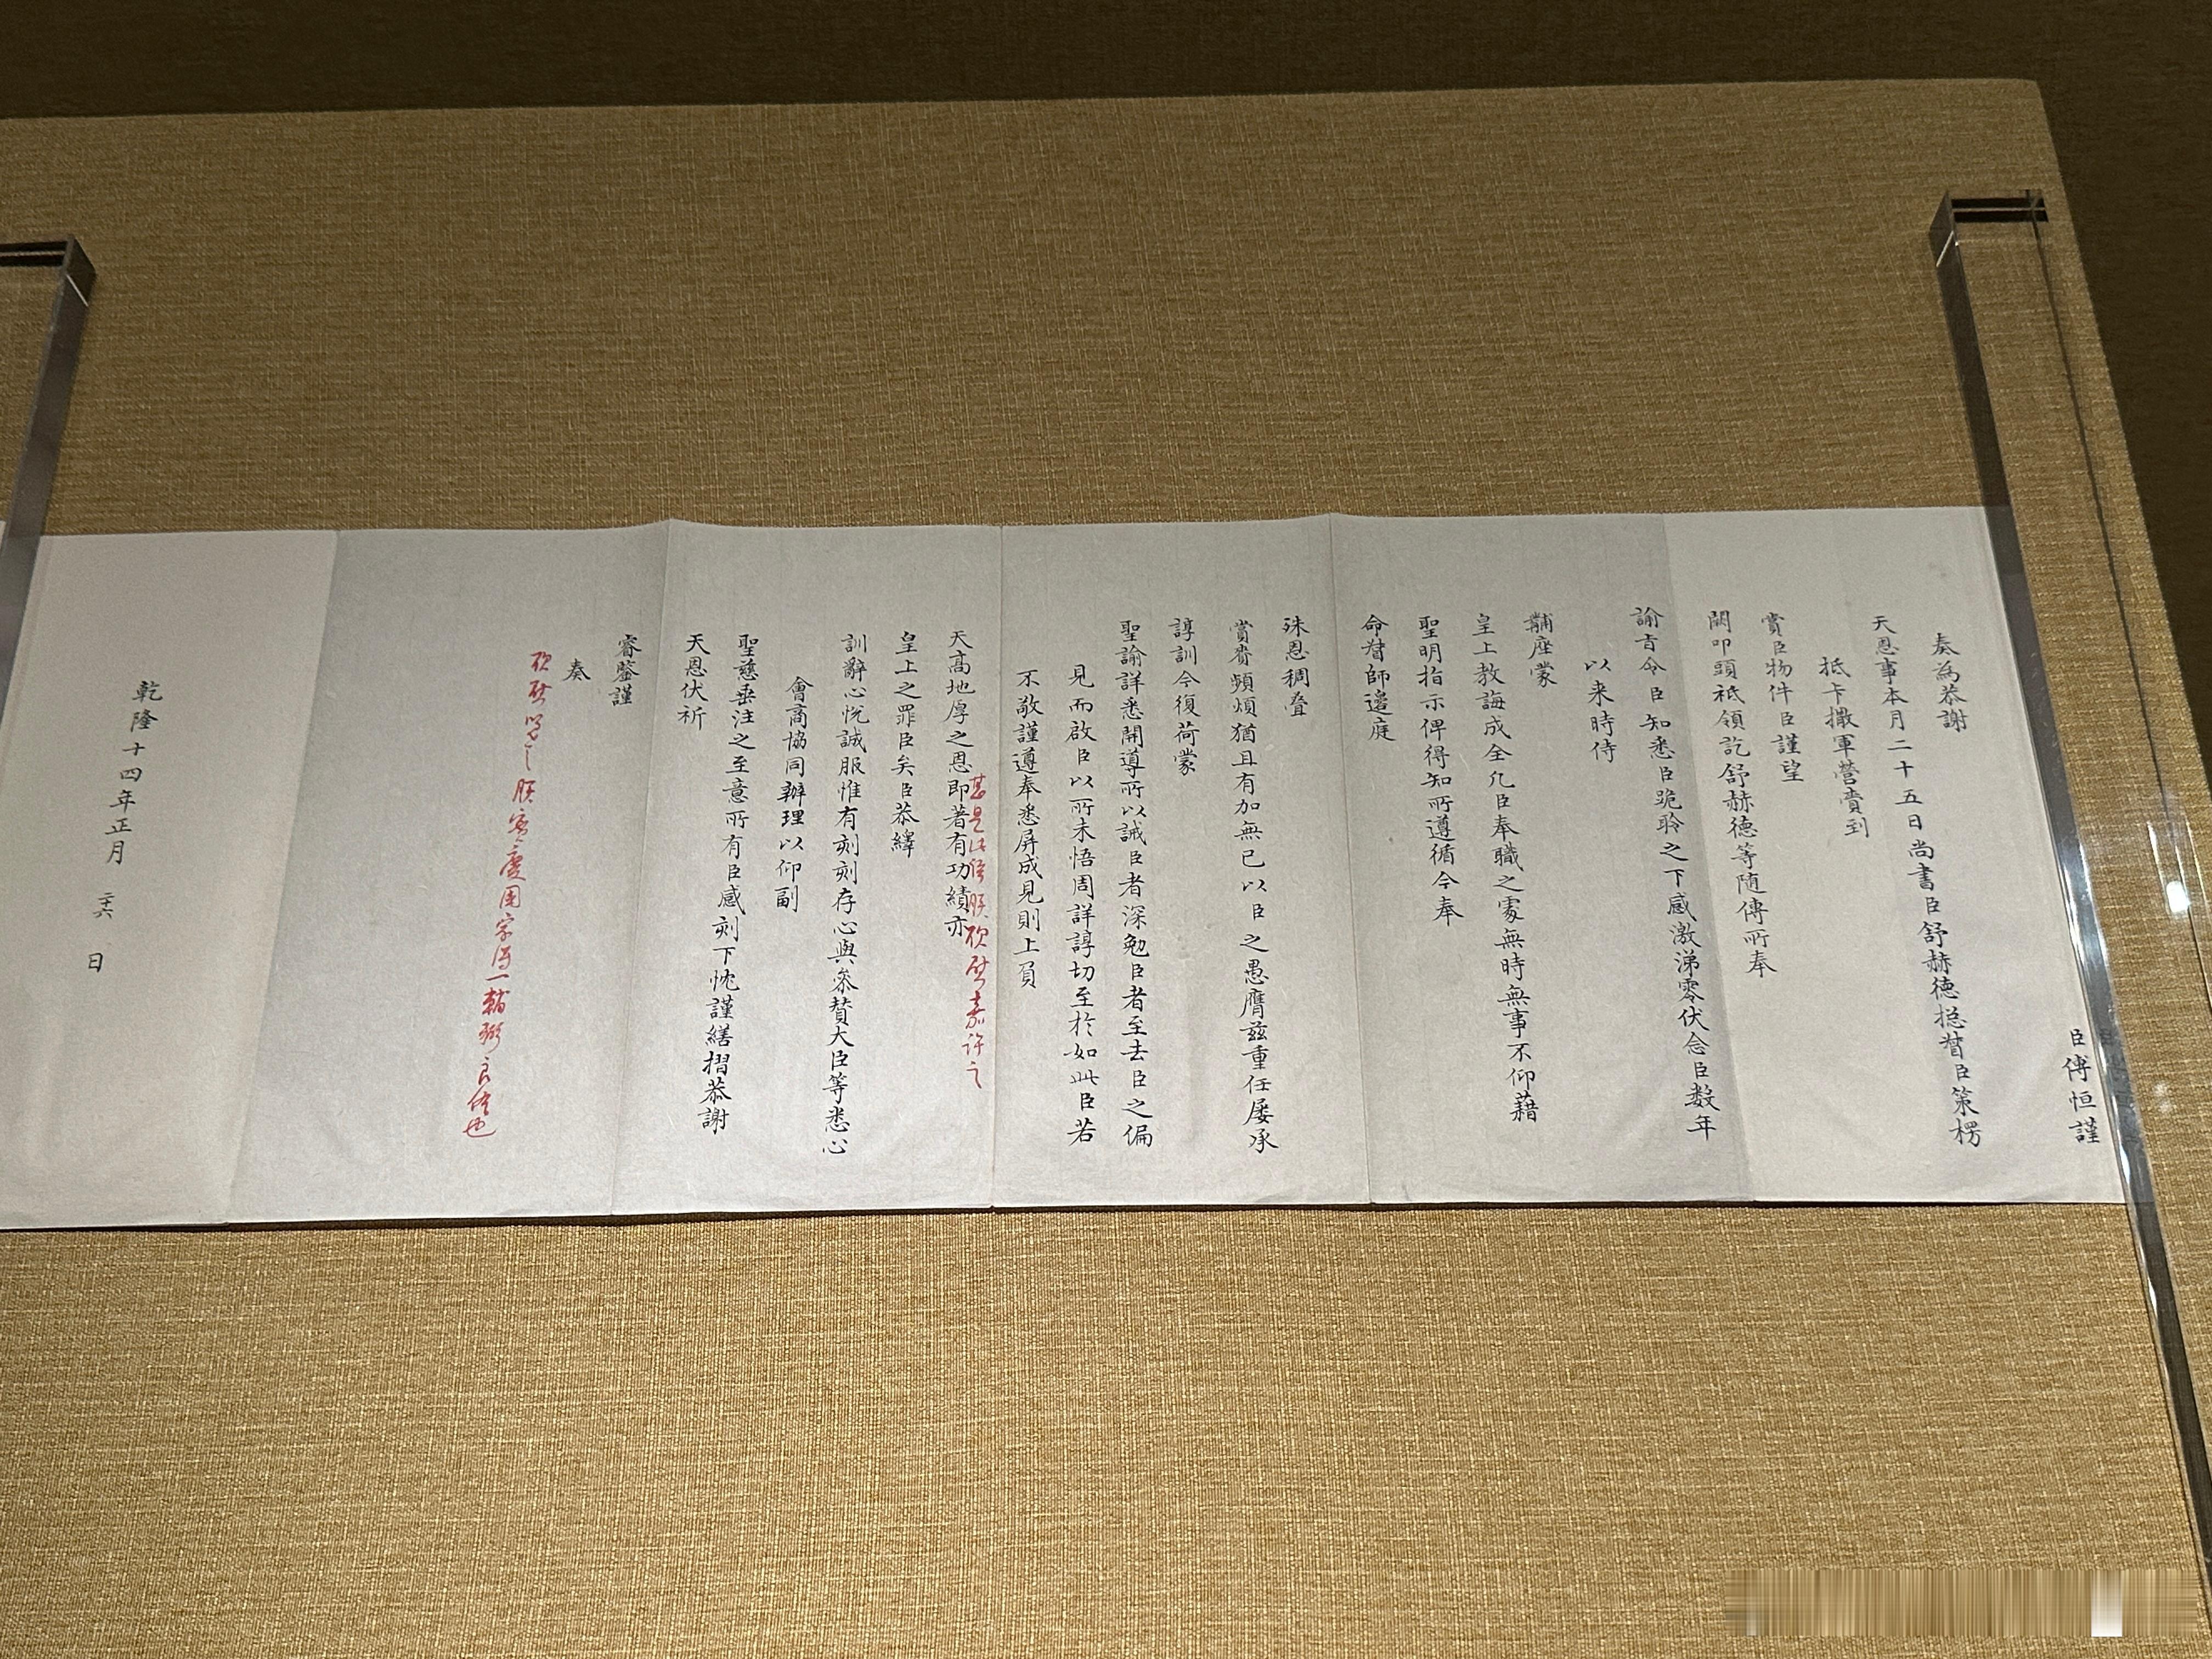 臣傅恒謹
奏為恭謝
天恩事本月二十五日尚書臣舒赫德揔督臣策楞
抵卡撒軍營賫到
賞臣物件臣謹望
闕叩頭祗領訖舒赫德等隨傳所奉
諭旨令臣知悉臣跪聆之下感激涕零伏念臣数年
以来時侍
黼座蒙
皇上教誨成全凢臣奉職之處無時無事不仰藉
聖明指示俾得知所遵循今奉
命督師邉庭
殊恩稠疊
賞賚頻煩猶且有加無已以臣之愚膺茲重任屡承
諄訓今復荷蒙
聖諭詳悉開導所以誡臣者深勉臣者至去臣之偏
見而啟臣以所未悟周詳諄切至於如此臣若
不敬謹遵奉悉屏成見則上負
天高地厚之恩即著有功績亦
甚是此語朕欣慰嘉許之
皇上之罪臣矣臣恭繹
訓辭心悅誠服惟有刻刻存心與叅贊大臣等悉心
會商協同辦理以仰副
聖慈垂注之至意所有臣感刻下忱謹繕摺恭謝
天恩伏祈
睿鑒謹
奏
欣慰覽之朕實慶國家得一輔弼良佐也
乾隆十四年正月二十六日